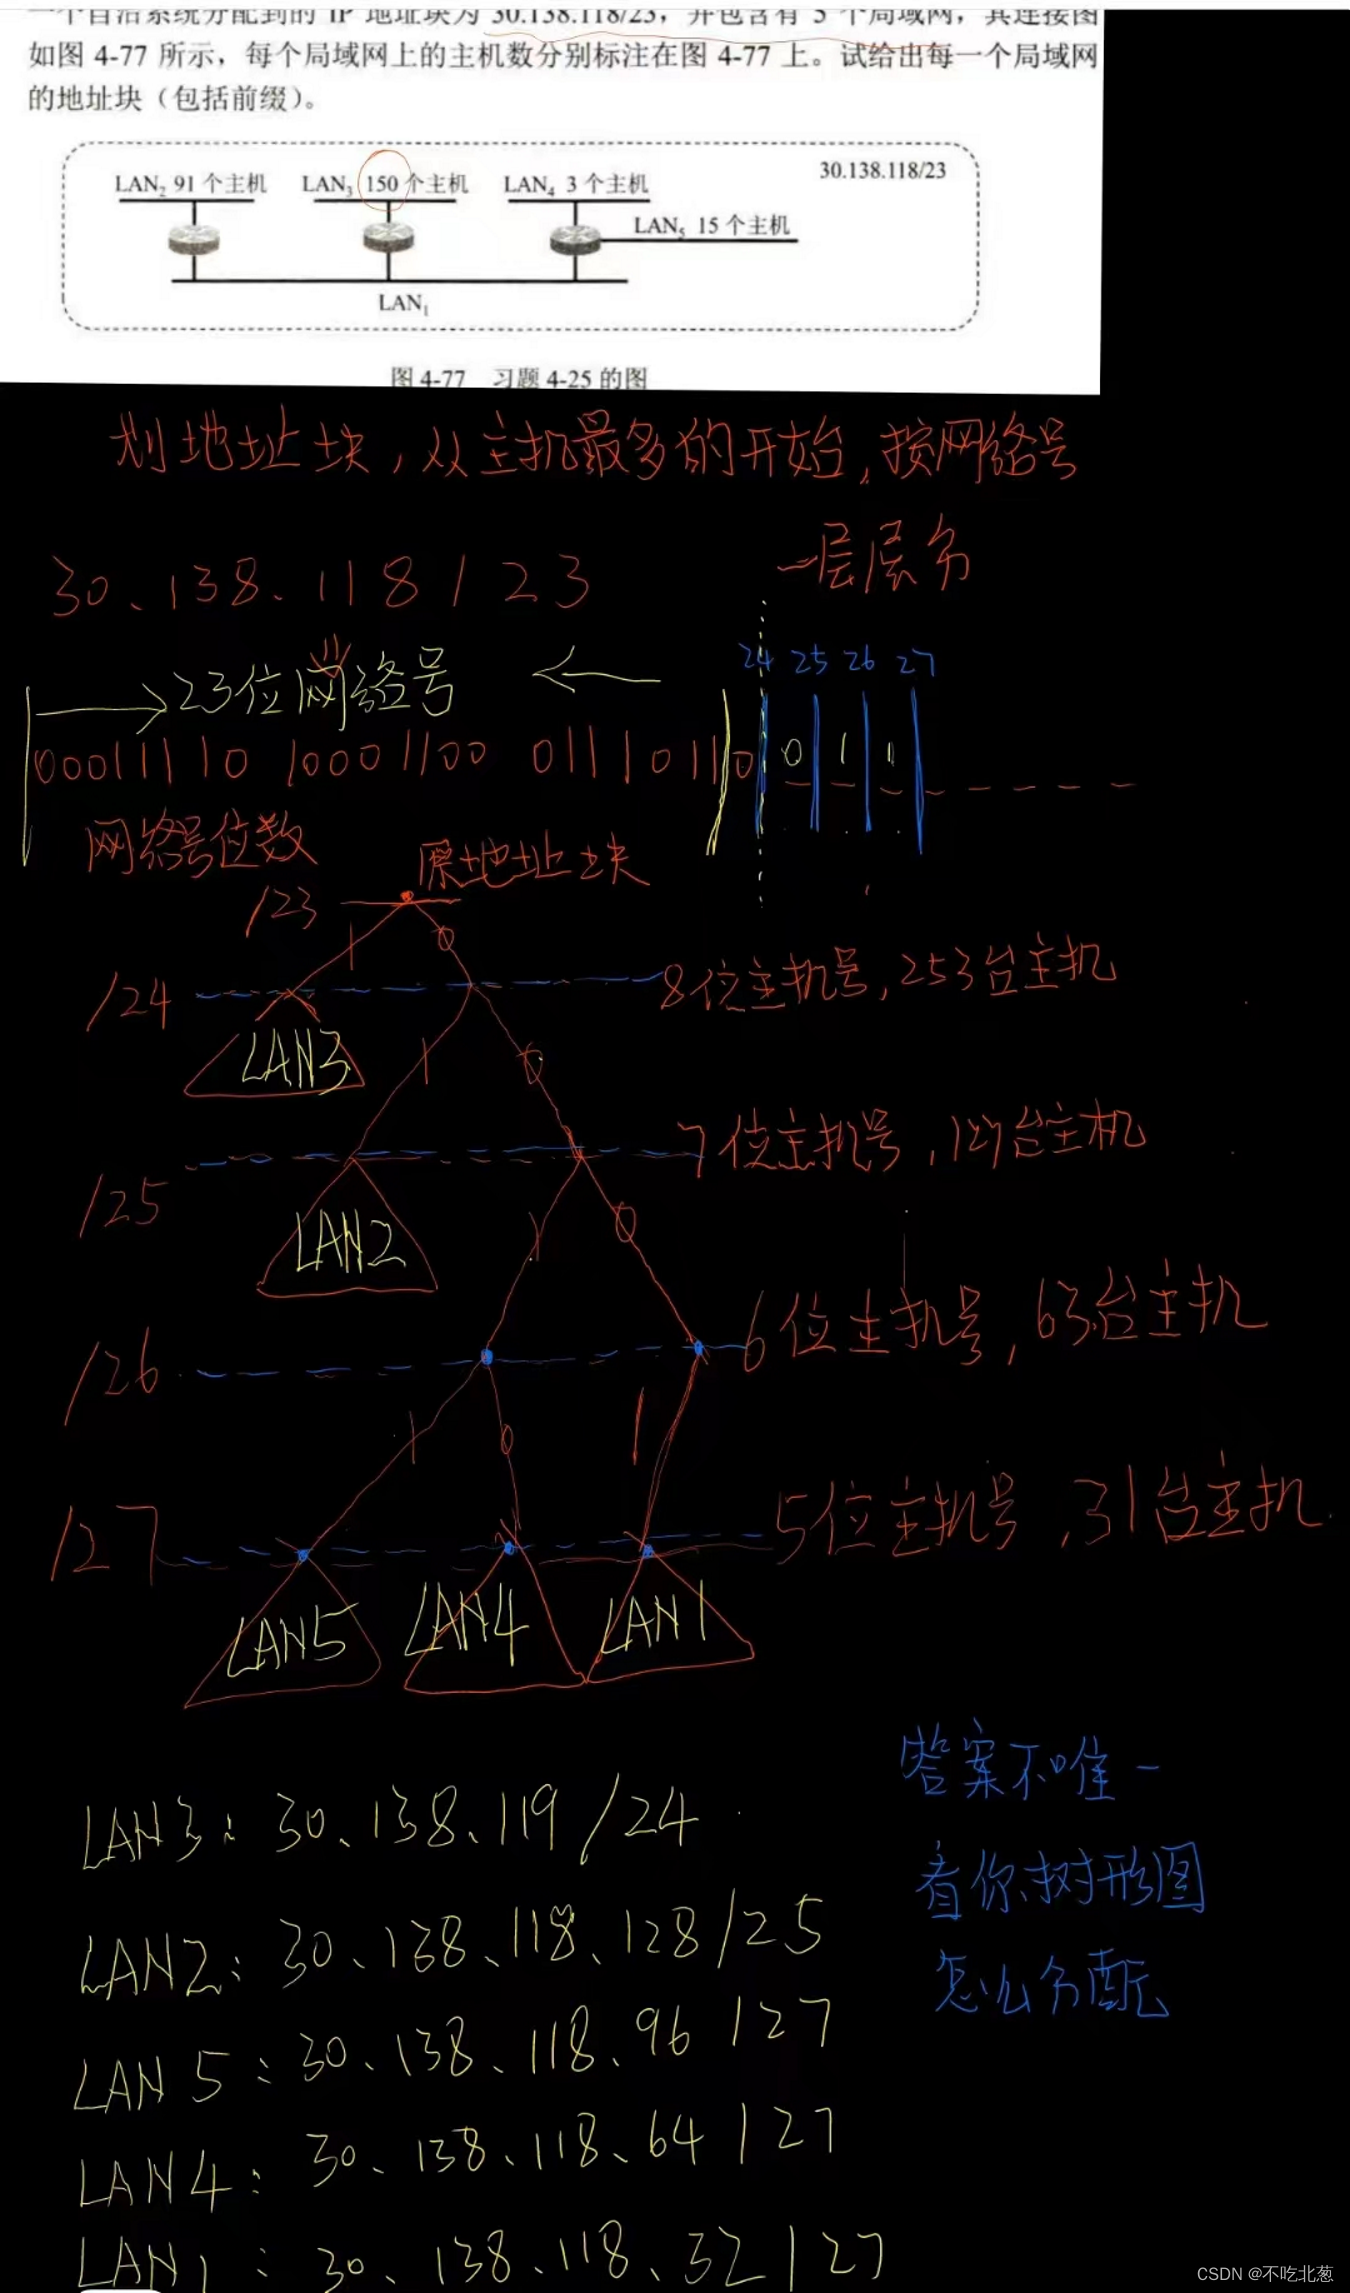 一个自治系统分配到的 IP 地址块为 30.138.118/23，并包含有 5 个局域网，其连接图
如图 4-77 所示，每个局域网上的主机数分别标注在图 4-77 上。试给出每一个局域网
的地址块（包括前缀）。
30.138.118/23
LAN₂ 91 个主机 LAN₃ 150 个主机 LAN₄ 3 个主机
LAN₅ 15 个主机
LAN₁
图 4-77 习题 4-25 的图
划地址块，从主机最多的开始，按网络号
一层层分
30.138.118/23
23位网络号
24 25 26 27
00011110 10001100 01110110 0 1 1
网络号位数
原地址块
/23
1 0
/24 8位主机号，253台主机
LAN3
1 0
/25 7位主机号，127台主机
LAN2
1 0
/26 6位主机号，63台主机
1 0 1
/27 5位主机号，31台主机.
LAN5 LAN4 LAN1
答案不唯一
看你树形图
怎么分配
LAN3: 30.138.119/24
LAN2: 30.138.118.128/25
LAN5: 30.138.118.96/27
LAN4: 30.138.118.64/27
LAN1: 30.138.118.32/27
CSDN @不吃北葱